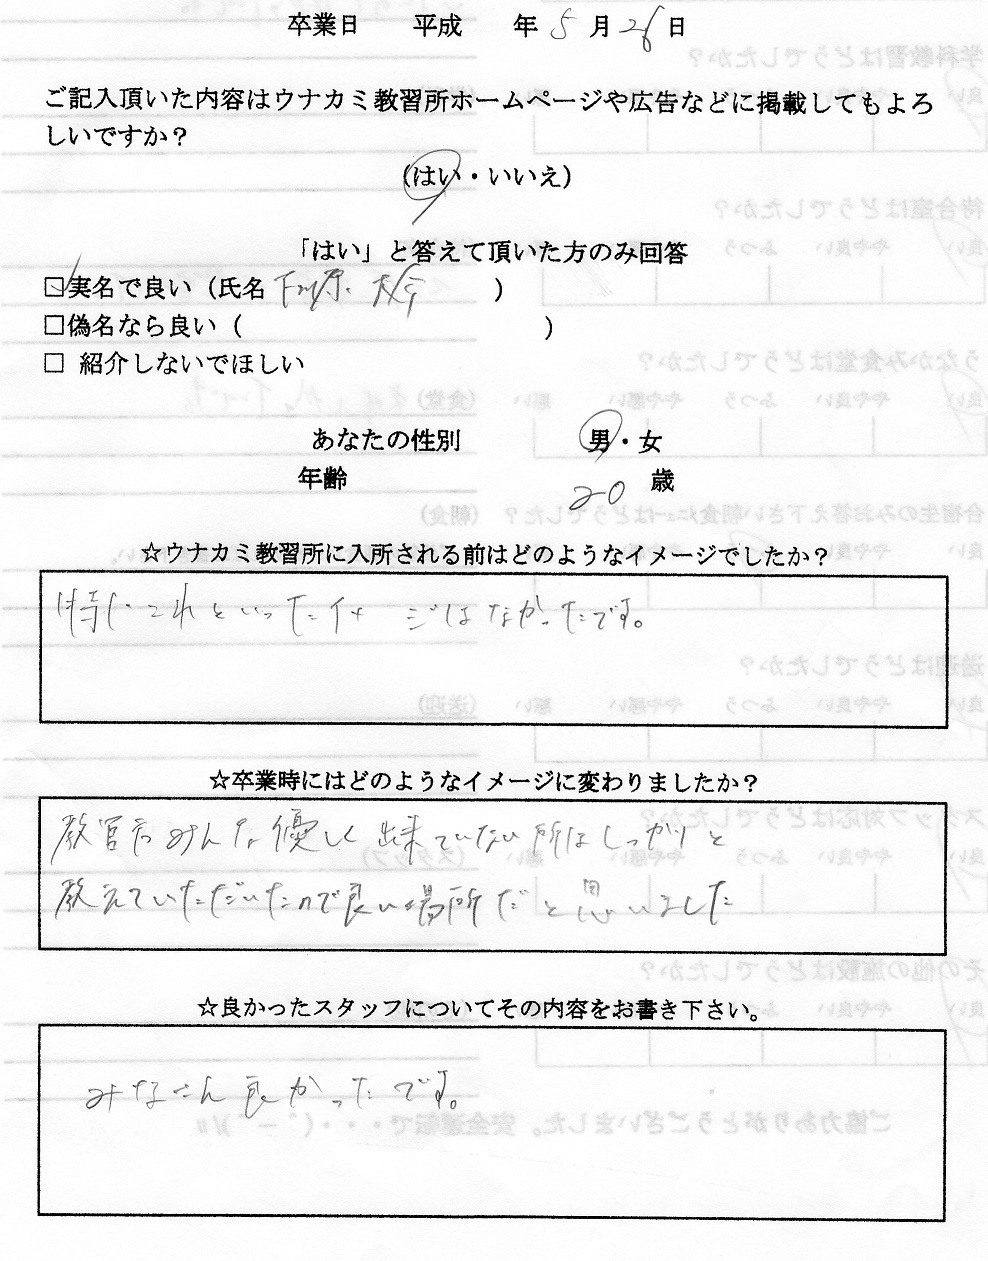 卒業日 平成 年 5 月 26 日
ご記入頂いた内容はウナカミ教習所ホームページや広告などに掲載してもよろ
しいですか？
(はい・いいえ)
「はい」と答えて頂いた方のみ回答
☑実名で良い（氏名 )
□偽名なら良い（ )
□ 紹介しないでほしい
あなたの性別 男・女
年齢 20 歳
☆ウナカミ教習所に入所される前はどのようなイメージでしたか？
特にこれといったイメージはなかったです。
☆卒業時にはどのようなイメージに変わりましたか？
教官がみんな優しく出来ていない所はしっかりと
教えていただいたので良い場所だと思いました
☆良かったスタッフについてその内容をお書き下さい。
みなさん良かったです。